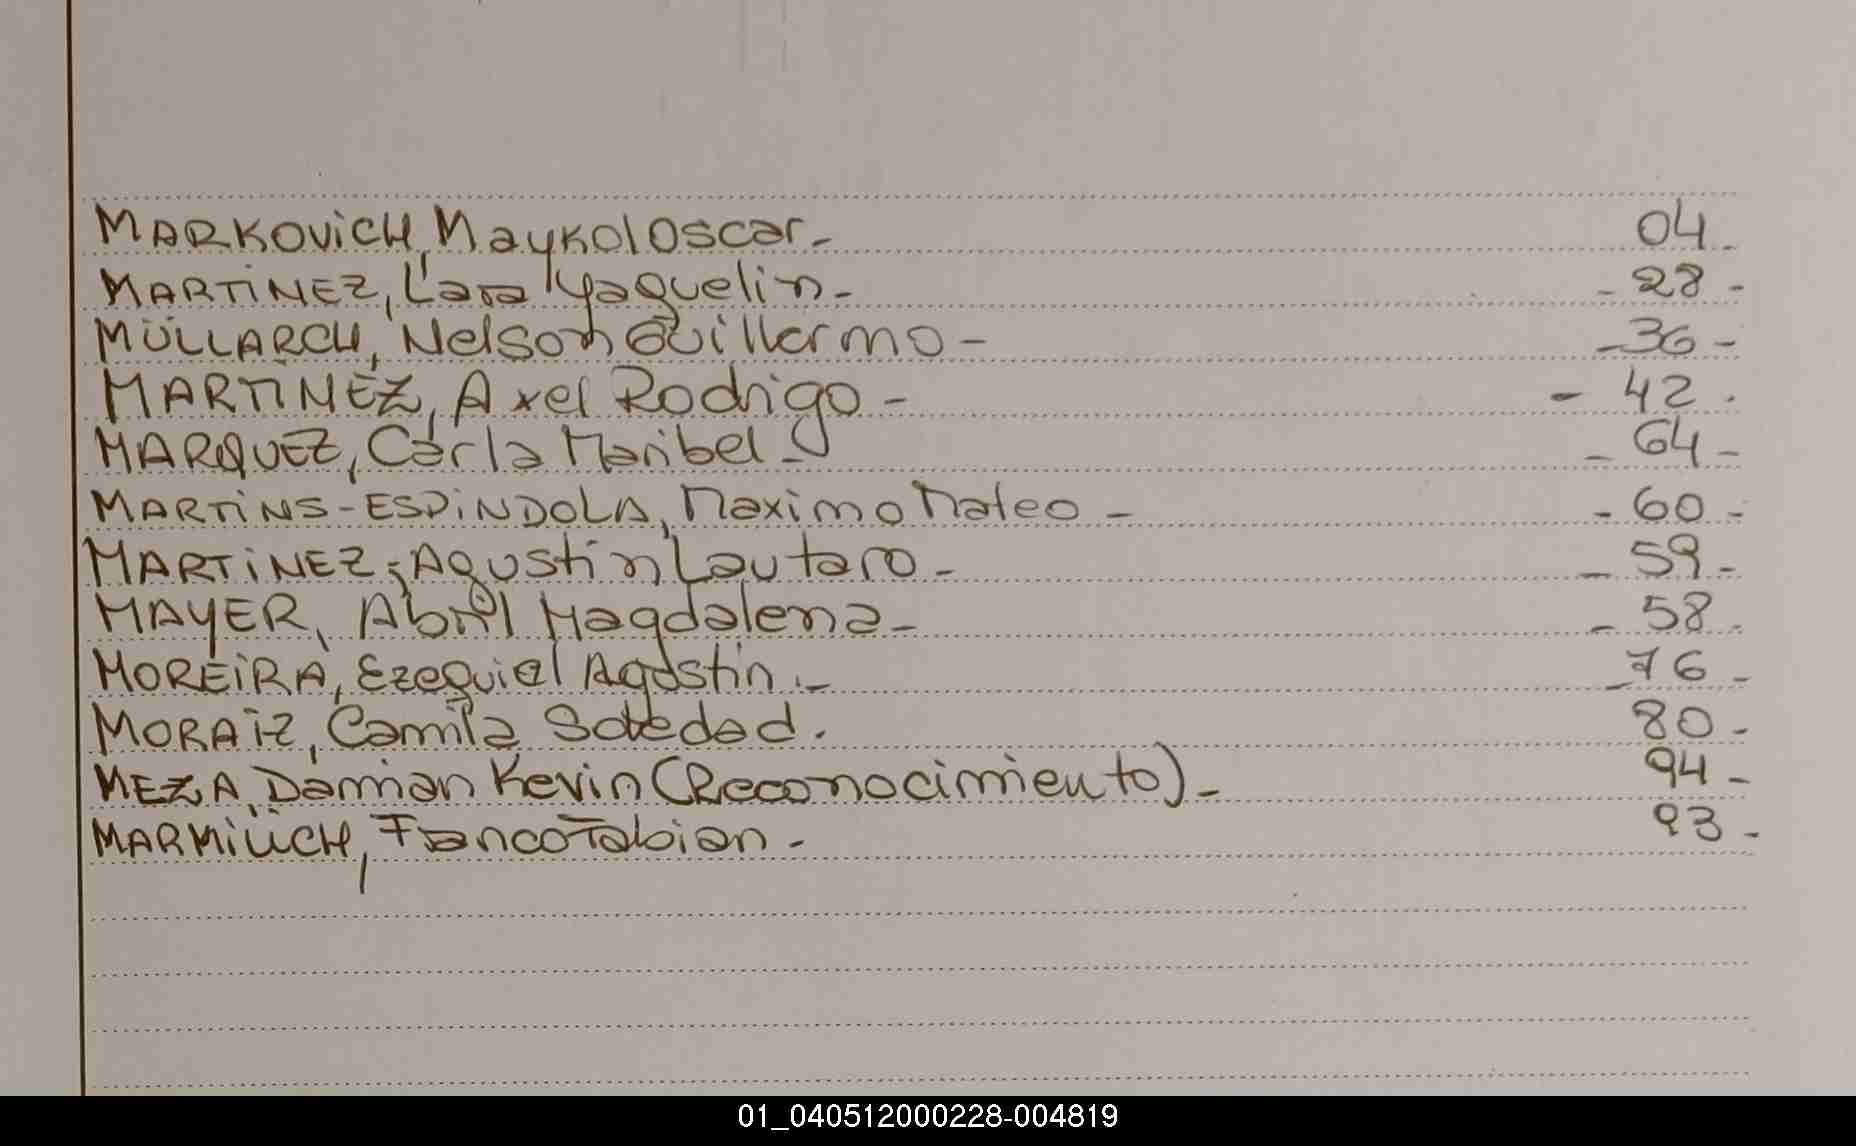 MARKOViCH, Maykol Oscar. - 04 -
MARTiNEZ, Lara Yaquelin. - - 28 -
MÜLLARCH, Nelson Guillermo - - 36 -
MARTINEZ, Axel Rodrigo - - 42 -
MARQUEZ, Carla Maribel - - 64 -
MARTiNS-ESPiNDOLA, Maximo Mateo - - 60 -
MARTiNEZ, Agustin Lautaro - - 59 -
MAYER, Abril Magdalena - - 58 -
MOREiRA, Ezequiel Agustin. - - 76 -
MORAiZ, Camila Soledad. 80 -
MEZA, Damian Kevin (Reconocimiento) - 94 -
Franco Fabian - 93 -
01_040512000228-004819